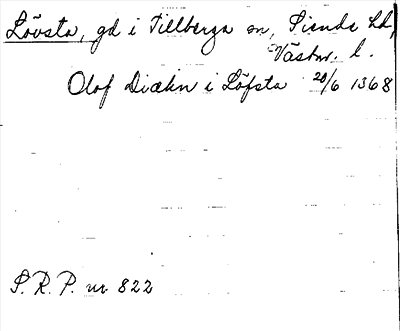 Lövsta, gd i Tillberga sn, Siende hd,
Västm. l.
Olof Diækn i Löfsta 20/6 1368
S.R.P. nr 822